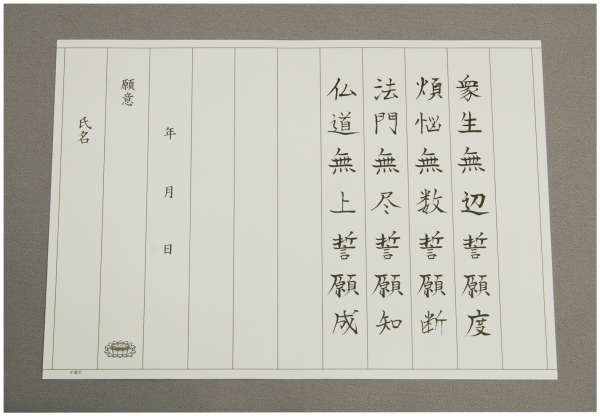 衆生無辺誓願度
煩悩無数誓願断
法門無尽誓願知
仏道無上誓願成
年月日
願意
氏名